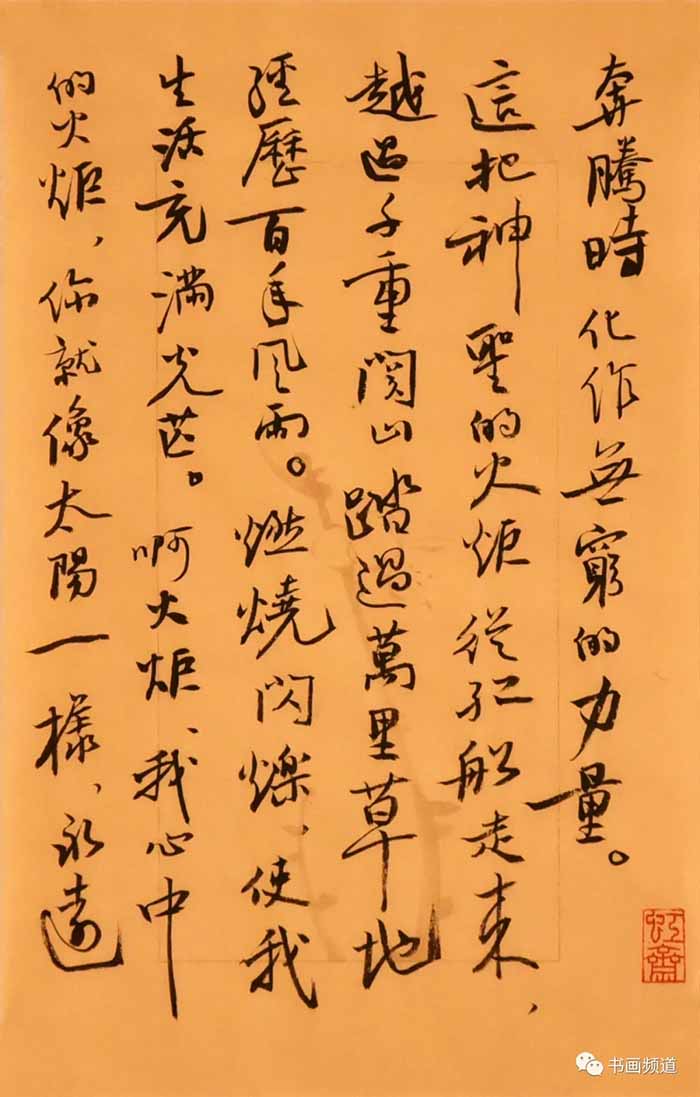 奔騰時化作無窮的力量。
這把神聖的火炬從紅船走来，
越過千重関山踏過萬里草地
經歷百年风雨。燃燒閃爍，使我
生活充滿光芒。啊火炬、我心中
的火炬，你就像太陽一樣，永遠
虹齋
书画频道